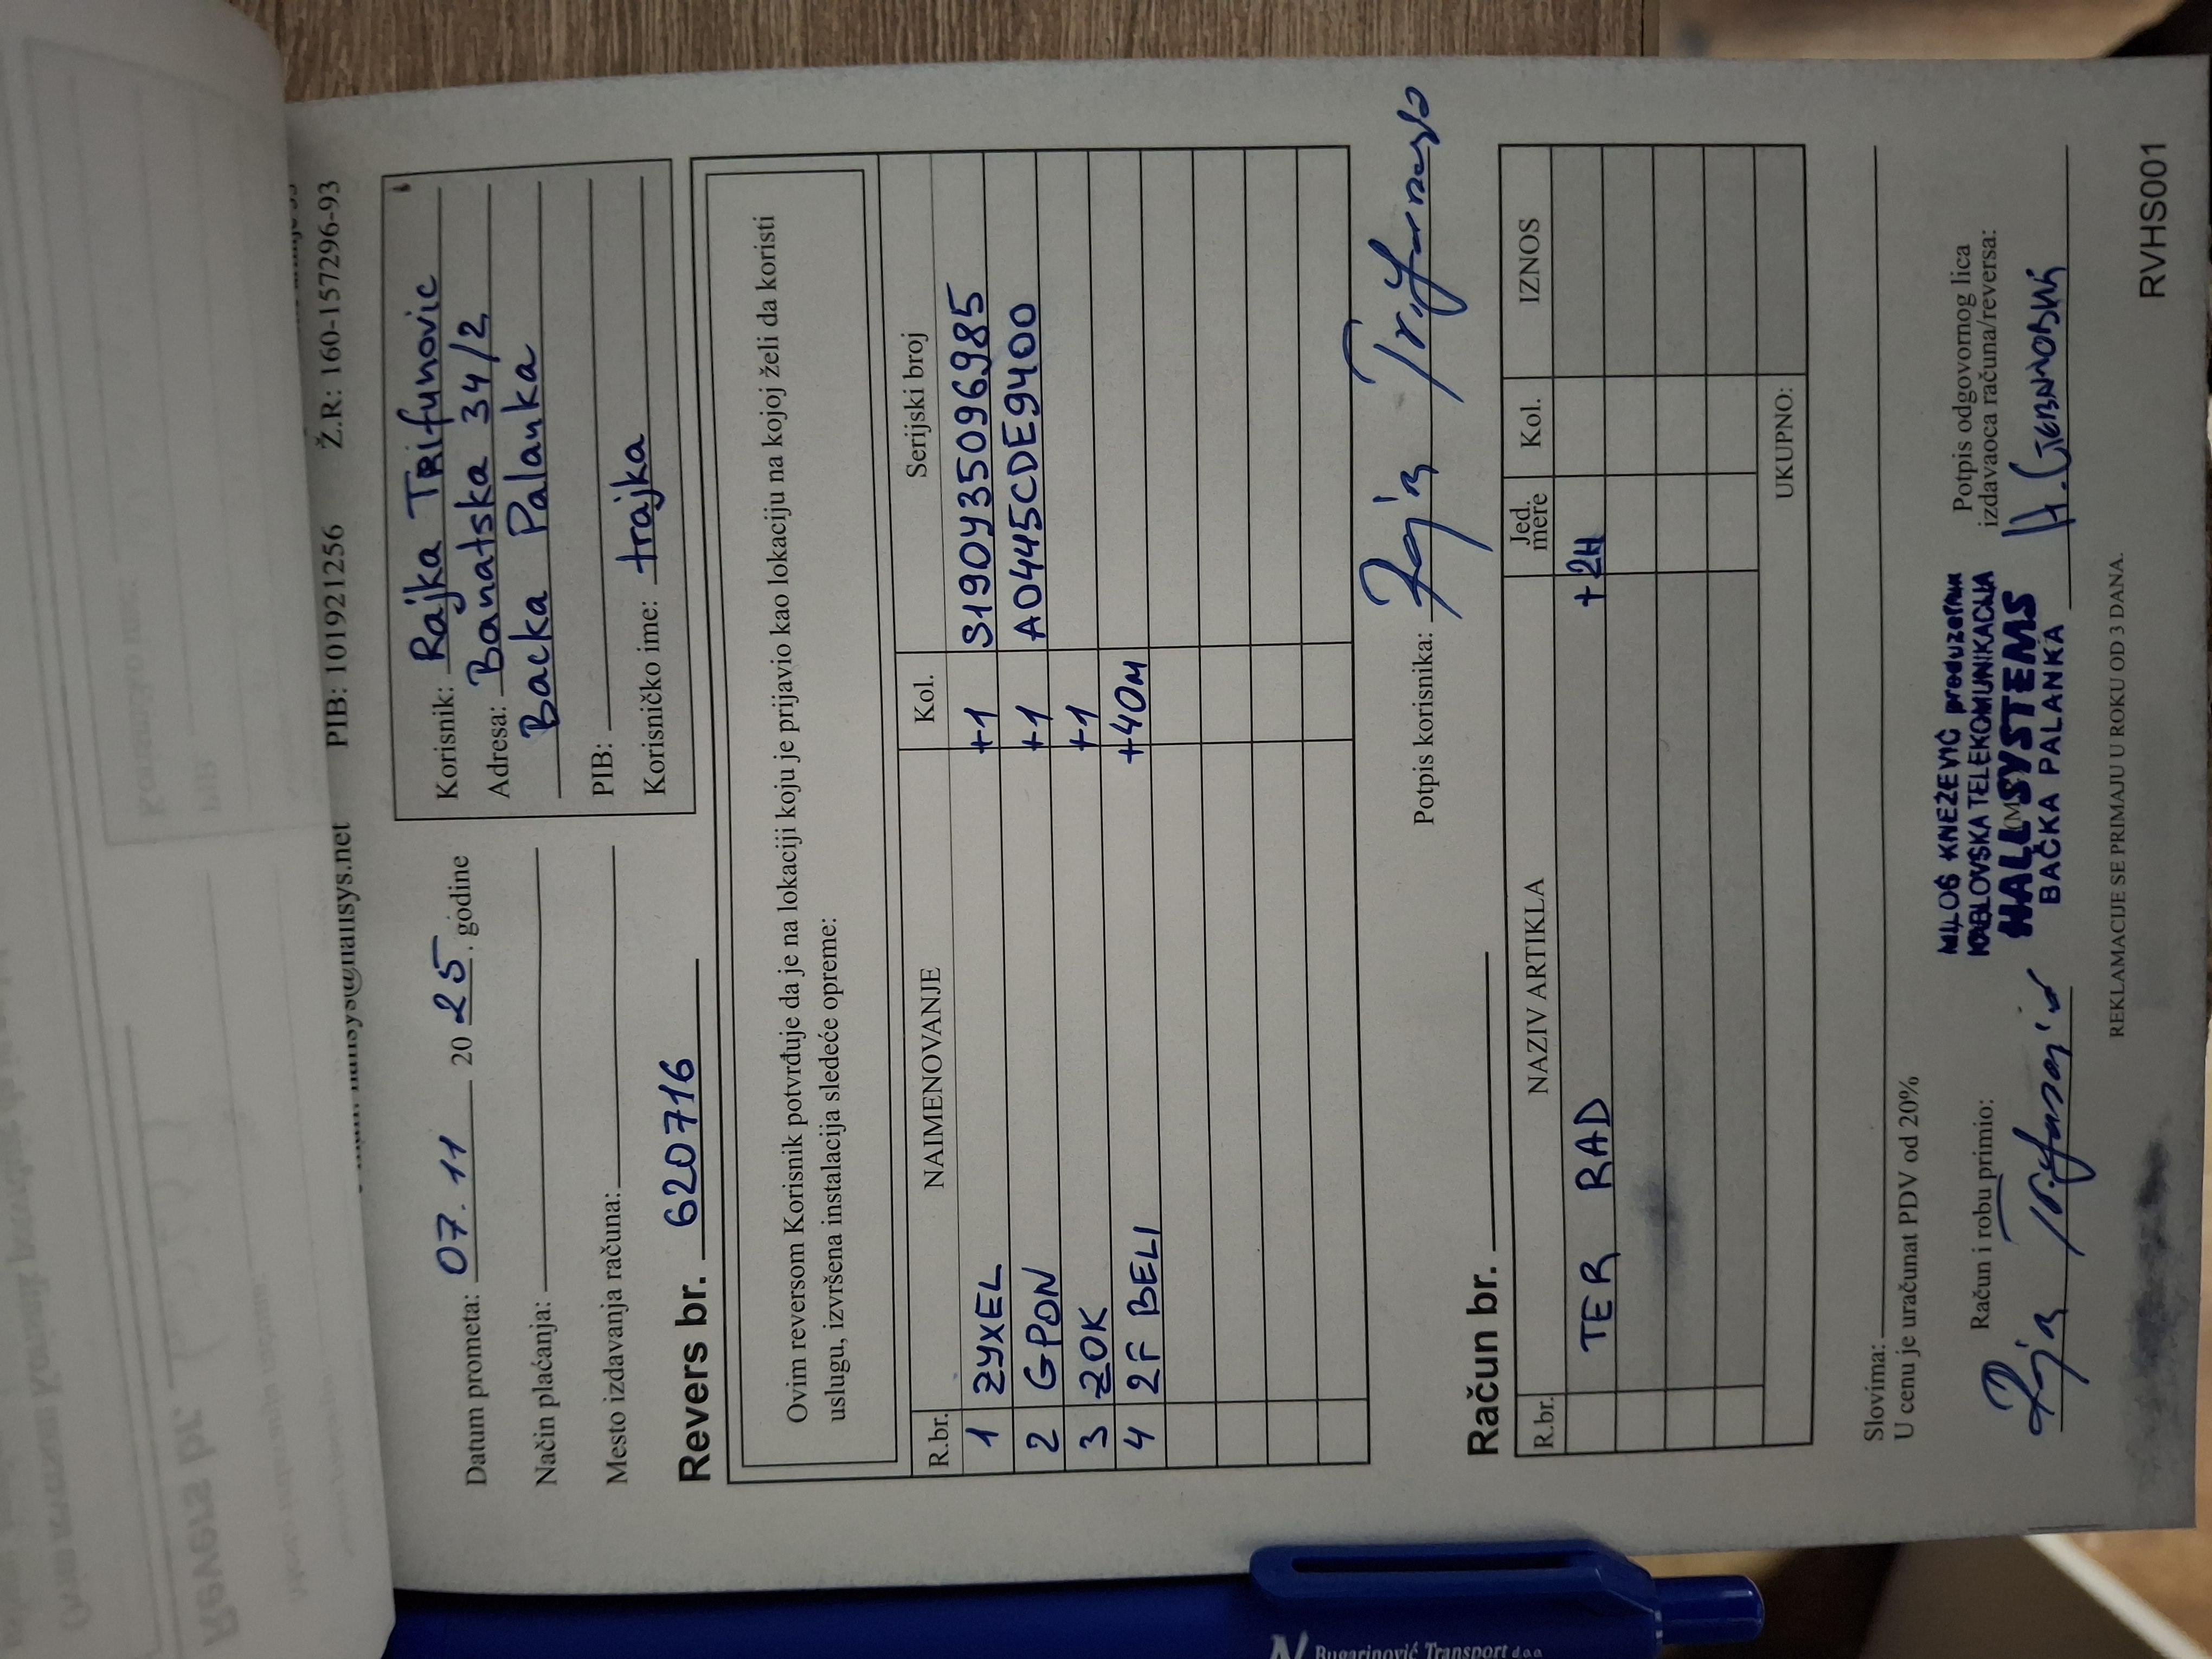 PIB: 101921256 Ž.R: 160-157296-93
Datum prometa: 07. 11 2025. godine
Način plaćanja:
Mesto izdavanja računa:
Korisnik: Rajka Trifunovic
Adresa: Banatska 34/2
Backa Palanka
PIB:
Korisničko ime: trajka
Revers br. 620716
Ovim reversom Korisnik potvrđuje da je na lokaciji koju je prijavio kao lokaciju na kojoj želi da koristi
uslugu, izvršena instalacija sledeće opreme:
R.br. NAIMENOVANJE Kol. Serijski broj
1 ZYXEL +1 S190Y35096985
2 GPON +1 A0445CDE9400
3 ZOK +1
4 2F BELI +40m
Potpis korisnika:
Račun br.
R.br. NAZIV ARTIKLA Jed. mere Kol. IZNOS
TER RAD +2H
UKUPNO:
Slovima:
U cenu je uračunat PDV od 20%
Račun i robu primio:
MILOŠ KNEŽEVIĆ preduzetnik
KABLOVSKA TELEKOMUNIKACIJA
HALL SYSTEMS
BAČKA PALANKA
Potpis odgovornog lica
izdavaoca računa/reversa:
REKLAMACIJE SE PRIMAJU U ROKU OD 3 DANA.
RVHS001
Bugarinović Transport d.o.o